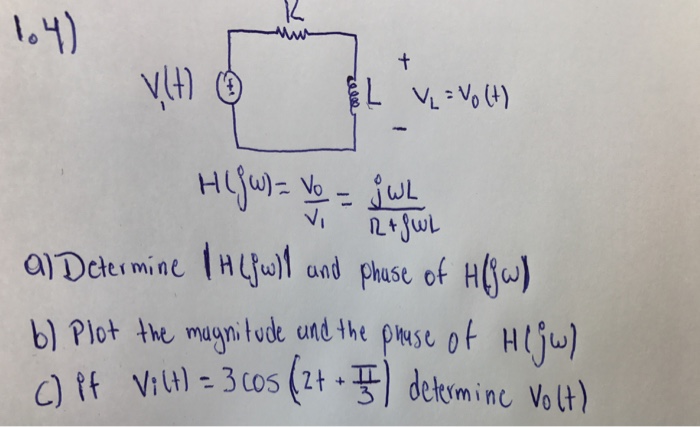 1.4)
R
Vi(t)
L
+
VL = Vo(t)
-
H(jω) = Vo/Vi = jωL/R+jωL
a) Determine |H(jω)| and phase of H(jω)
b) Plot the magnitude and the phase of H(jω)
c) if Vi(t) = 3 cos (2t + π/3) determine Vo(t)